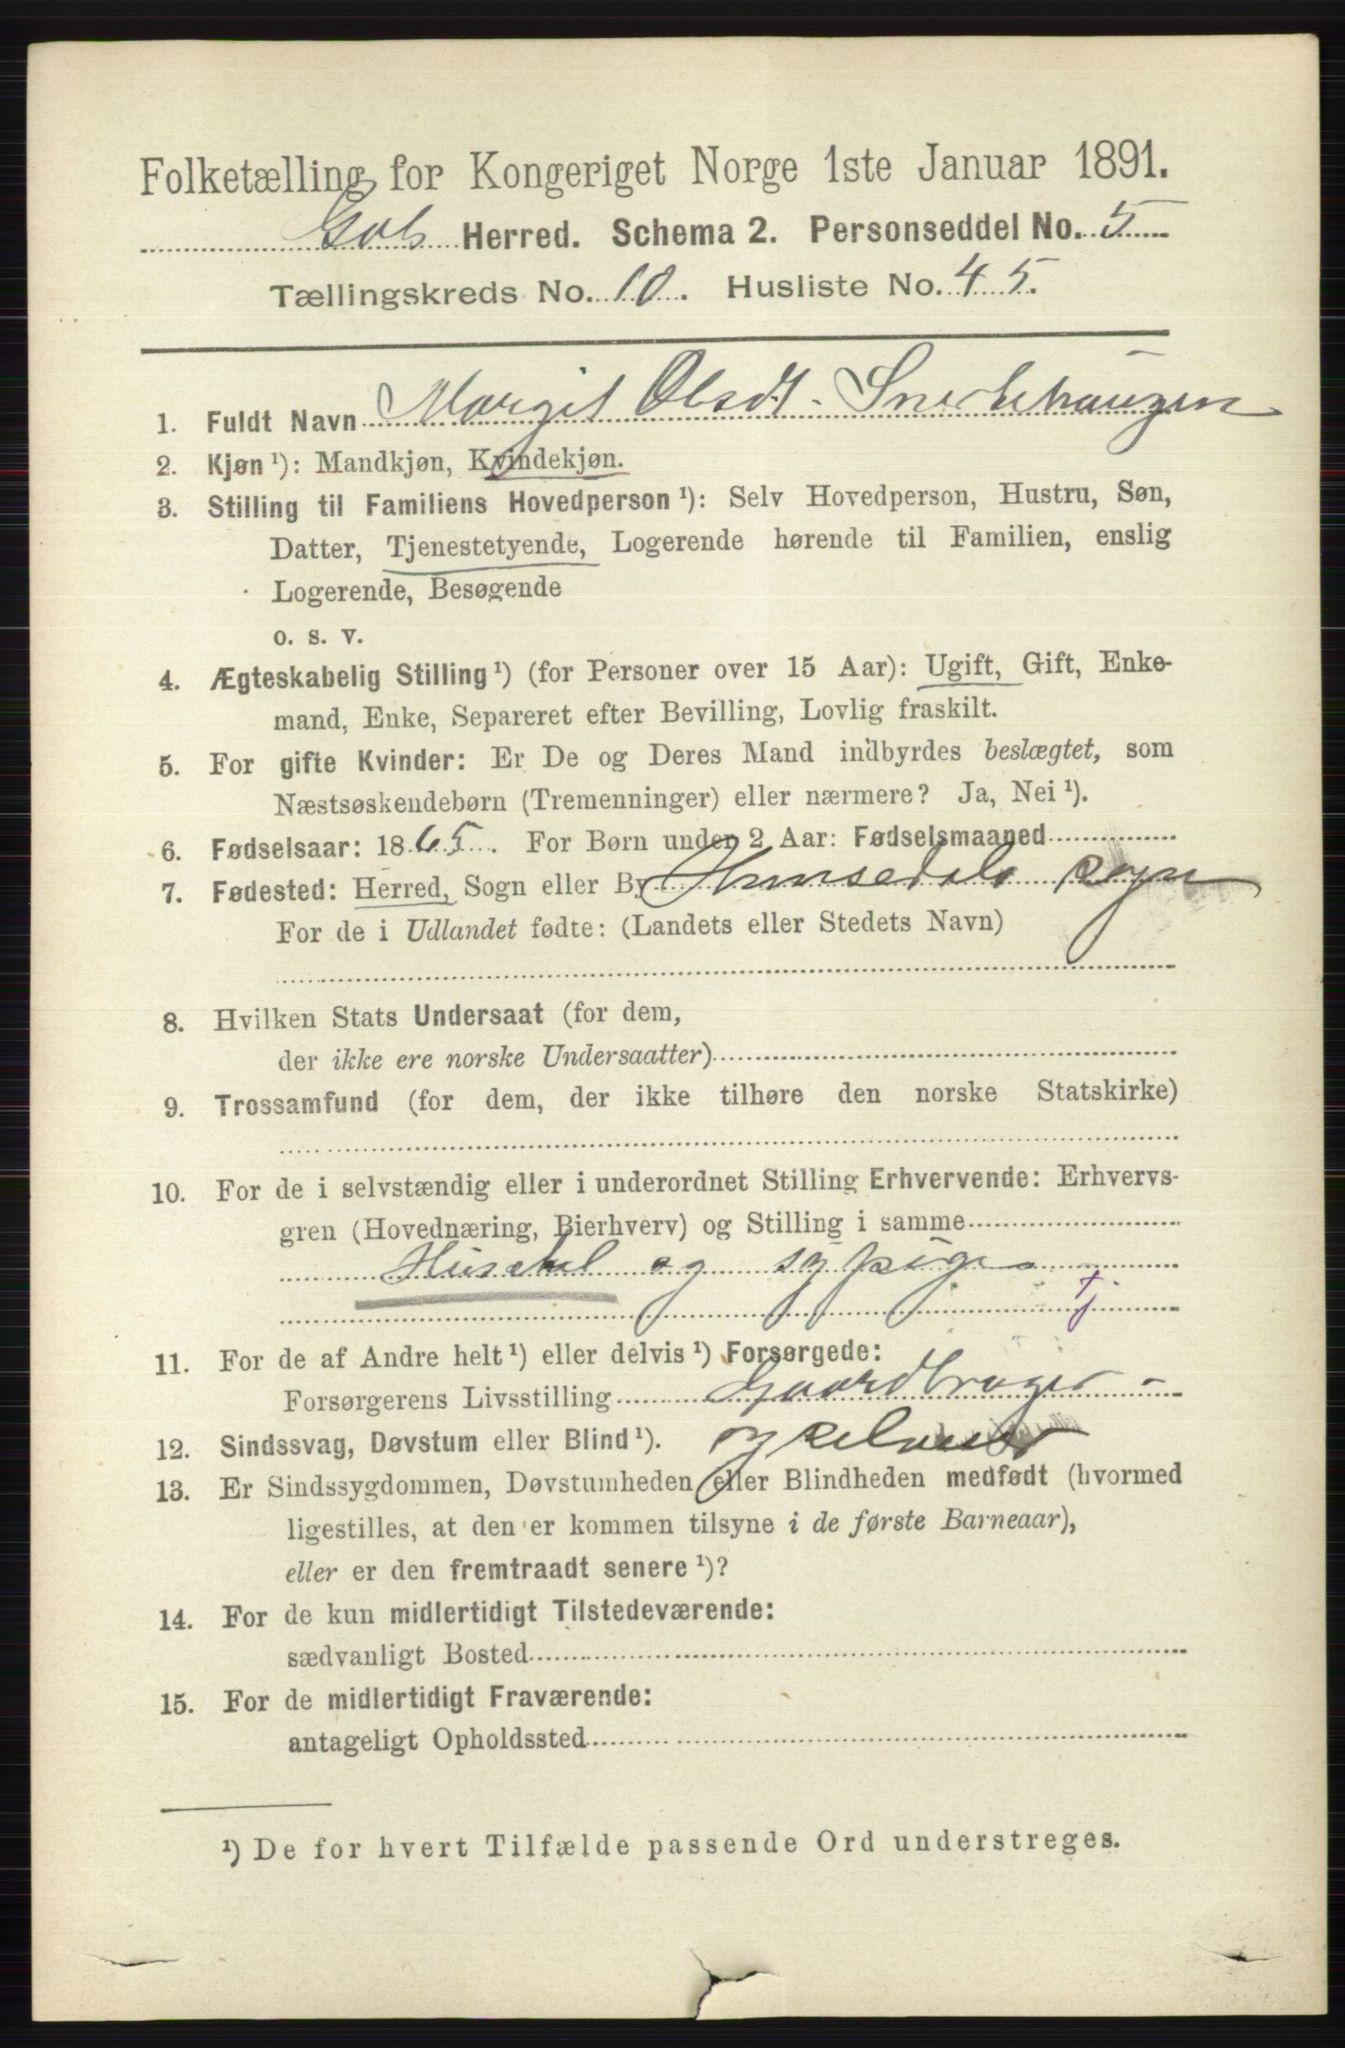 Folketælling for Kongeriget Norge 1ste Januar 1891.
Gols Herred. Schema 2. Personseddel No. 5
Tællingskreds No. 10. Husliste No. 45.
1. Fuldt Navn Margit Olsdt.
2. Kjøn ¹): Mandkjøn, Kvindekjøn.
3. Stilling til Familiens Hovedperson ¹): Selv Hovedperson, Hustru, Søn,
Datter, Tjenestetyende, Logerende hørende til Familien, enslig
Logerende, Besøgende
o. s. v.
4. Ægteskabelig Stilling ¹) (for Personer over 15 Aar): Ugift, Gift, Enke-
mand, Enke, Separeret efter Bevilling, Lovlig fraskilt.
5. For gifte Kvinder: Er De og Deres Mand indbyrdes beslægtet, som
Næstsøskendebørn (Tremenninger) eller nærmere? Ja, Nei ¹).
6. Fødselsaar: 1865. For Børn under 2 Aar: Fødselsmaaned
7. Fødested: Herred, Sogn eller By Hemsedals sogn
For de i Udlandet fødte: (Landets eller Stedets Navn)
8. Hvilken Stats Undersaat (for dem,
der ikke ere norske Undersaatter)
9. Trossamfund (for dem, der ikke tilhøre den norske Statskirke)
10. For de i selvstændig eller i underordnet Stilling Erhvervende: Erhvervs-
gren (Hovednæring, Bierhverv) og Stilling i samme
Husstel og sypige
tj
11. For de af Andre helt ¹) eller delvis ¹) Forsørgede:
Forsørgerens Livsstilling Gaardbruger -
12. Sindssvag, Døvstum eller Blind ¹). og
13. Er Sindssygdommen, Døvstumheden eller Blindheden medfødt (hvormed
ligestilles, at den er kommen tilsyne i de første Barneaar),
eller er den fremtraadt senere ¹)?
14. For de kun midlertidigt Tilstedeværende:
sædvanligt Bosted
15. For de midlertidigt Fraværende:
antageligt Opholdssted
¹) De for hvert Tilfælde passende Ord understreges.